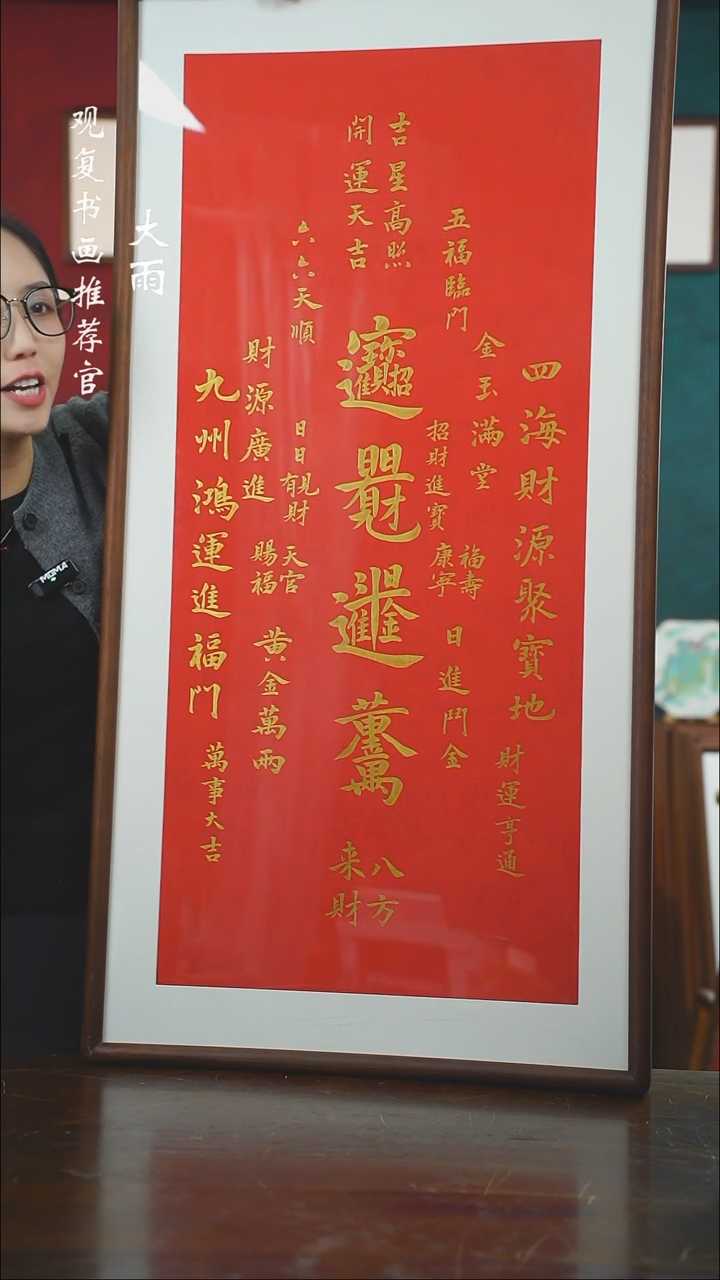 观复书画推荐官
大雨
吉星高照
開運天吉
四海財源聚寶地
財運亨通
五福臨門
金玉滿堂
招財進寶
福壽
康寧
日進鬥金
八方
来財
六六天順
日日有見財
天官
賜福
財源廣進
黄金萬兩
九州鴻運進福門
萬事大吉
MOMA